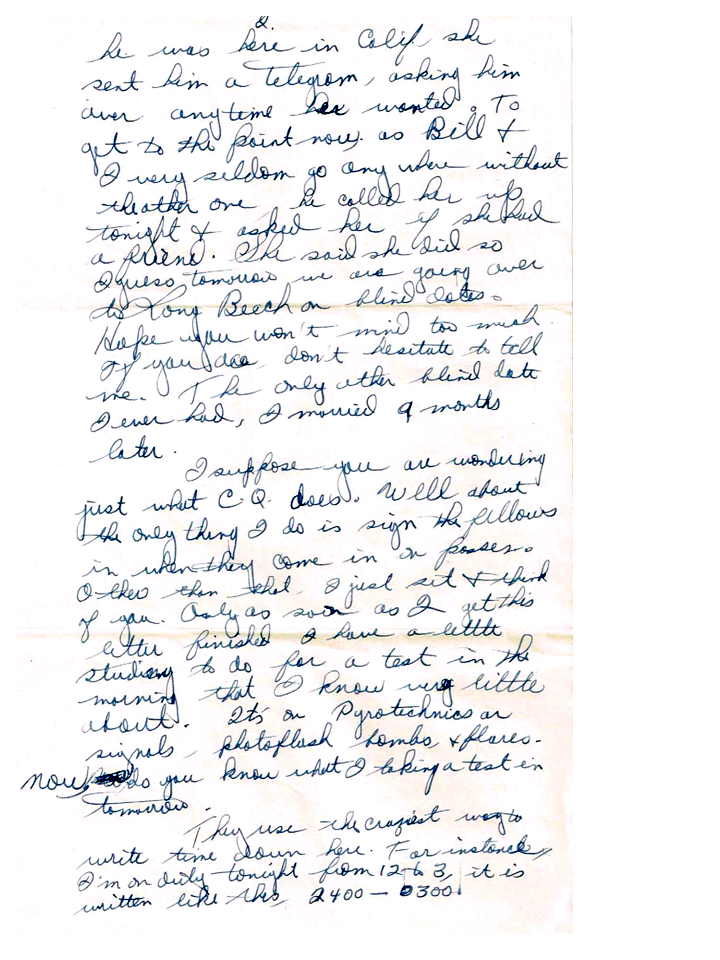 2.
he was here in Calif, she
sent him a telegram, asking him
over anytime he wanted. To
get to the point now. as Bill &
I very seldom go any where without
the other one he called her up
tonight & asked her if she had
a friend. She said she did so
I guess tomorrow we are going over
to Long Beech on blind dates.
Hope you won't mind too much.
If you do, don't hesitate to tell
me. The only other blind date
I ever had, I married 9 months
later.
I suppose you are wondering
just what C.Q. does. Well about
the only thing I do is sign the fellows
in when they come in on passes.
Other than that, I just sit & think
of you. Only as soon as I get this
letter finished I have a little
studying to do for a test in the
morning that I know very little
about. It's on Pyrotechnics or
signals, photoflash bombs, & flares.
now, do you know what I taking a test in
tomorrow.
They use the craziest way to
write time down here. For instance,
I'm on duty tonight from 12 to 3, it is
written like this, 2400 — 0300.